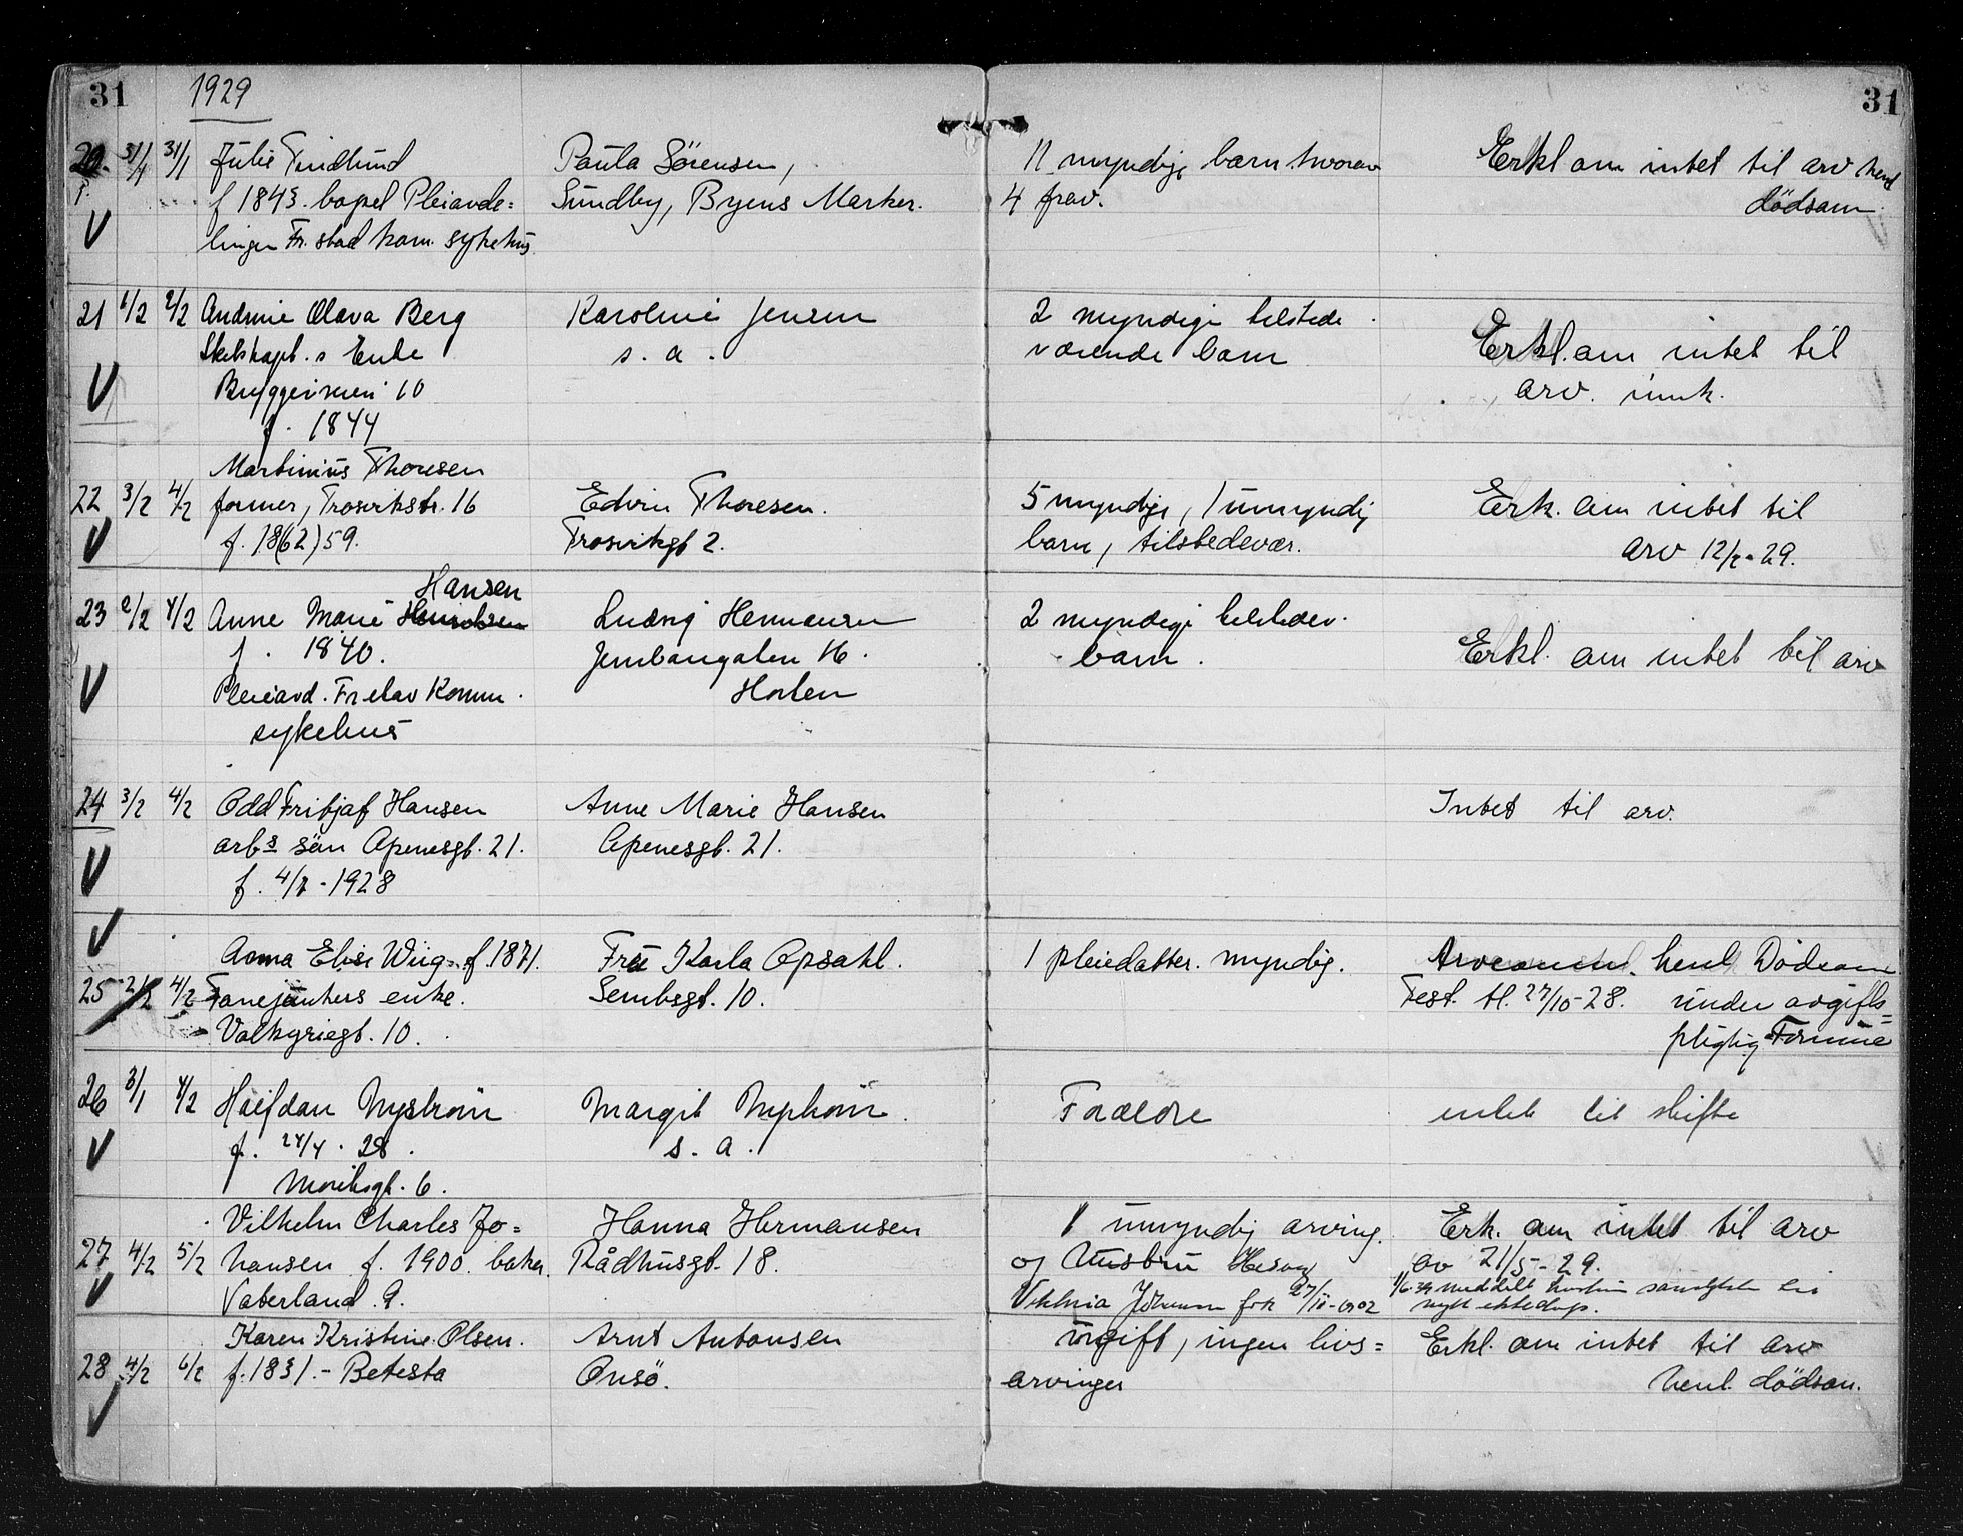 31 1929 31
20. 31/1 31/1 Julie Findlund Paula Sörensen, 11 myndige barn hvorav Erkl om intet til arv henl
f 1843. bopel Pleiavde= Sundby, Byens Marker. 4 frav. dödsam.
lingen Fr. stad kom. sykehus
21 1/2 2/2 Andrine Olava Berg Karoline Jensen 2 myndige tilstede
Skibskapt. s Enke s. a. værende barn Erkl. om intet til
Bryggeriveien 10 arv. innk.
f. 1844
Martinius Thoresen
22 3/2 4/2 former, Trosvikstr. 16 Edvin Thoresen. 5 myndige, 1 umyndig Erk. om intet til
f. 18(62)59. Trosvikgt 2. barn, tilstedevær. arv 12/2-29.
Hansen
23 2/2 4/2 Anne Marie Ludvig Hermansen 2 myndige tilstedev.
f. 1840. Jernbanegaten 16. barn. Erkl. om intet til arv
Pleieavd. Fr.stav Komm. Horten
sykehus
24 3/2 4/2 Odd Fritjof Hansen Anne Marie Hansen Intet til arv.
arbs sön Apenesgt. 21. Apenesgt. 21.
f. 4/2-1928
Anna Elise Wiig f. 1871. Fru Karla Opsahl. 1 pleiedatter. myndig. henl. Dödsam
25 2/2 4/2 Fanejunkers enke. Sembsgt. 10. Test. tl. 27/10-28. under avgifts=
Valkyriegt. 10. pligtig Formue
26 3/1 4/2 Halfdan Nyström Margit Nyström. Forældre intet til skifte
f. 24/4. 28. s. a.
Moritsgt. 6.
Vilhelm Charles Jo= Hanna Hermansen 1 umyndig arving. Erk. om intet til arv
27 4/2 5/2 hansen f. 1900. baker. Rådhusgt. 18. og Hustru av 21/5-29.
Vaterland 9. Viktoria Johansen 27/11-1902 nytt ekteskap.
Karen Kristine Olsen. Arnt Antonsen ugift, ingen livs= Erkl. om intet til arv
28 4/2 6/2 f. 1831.- Betesta Onsö. arvinger henl. dödsam.